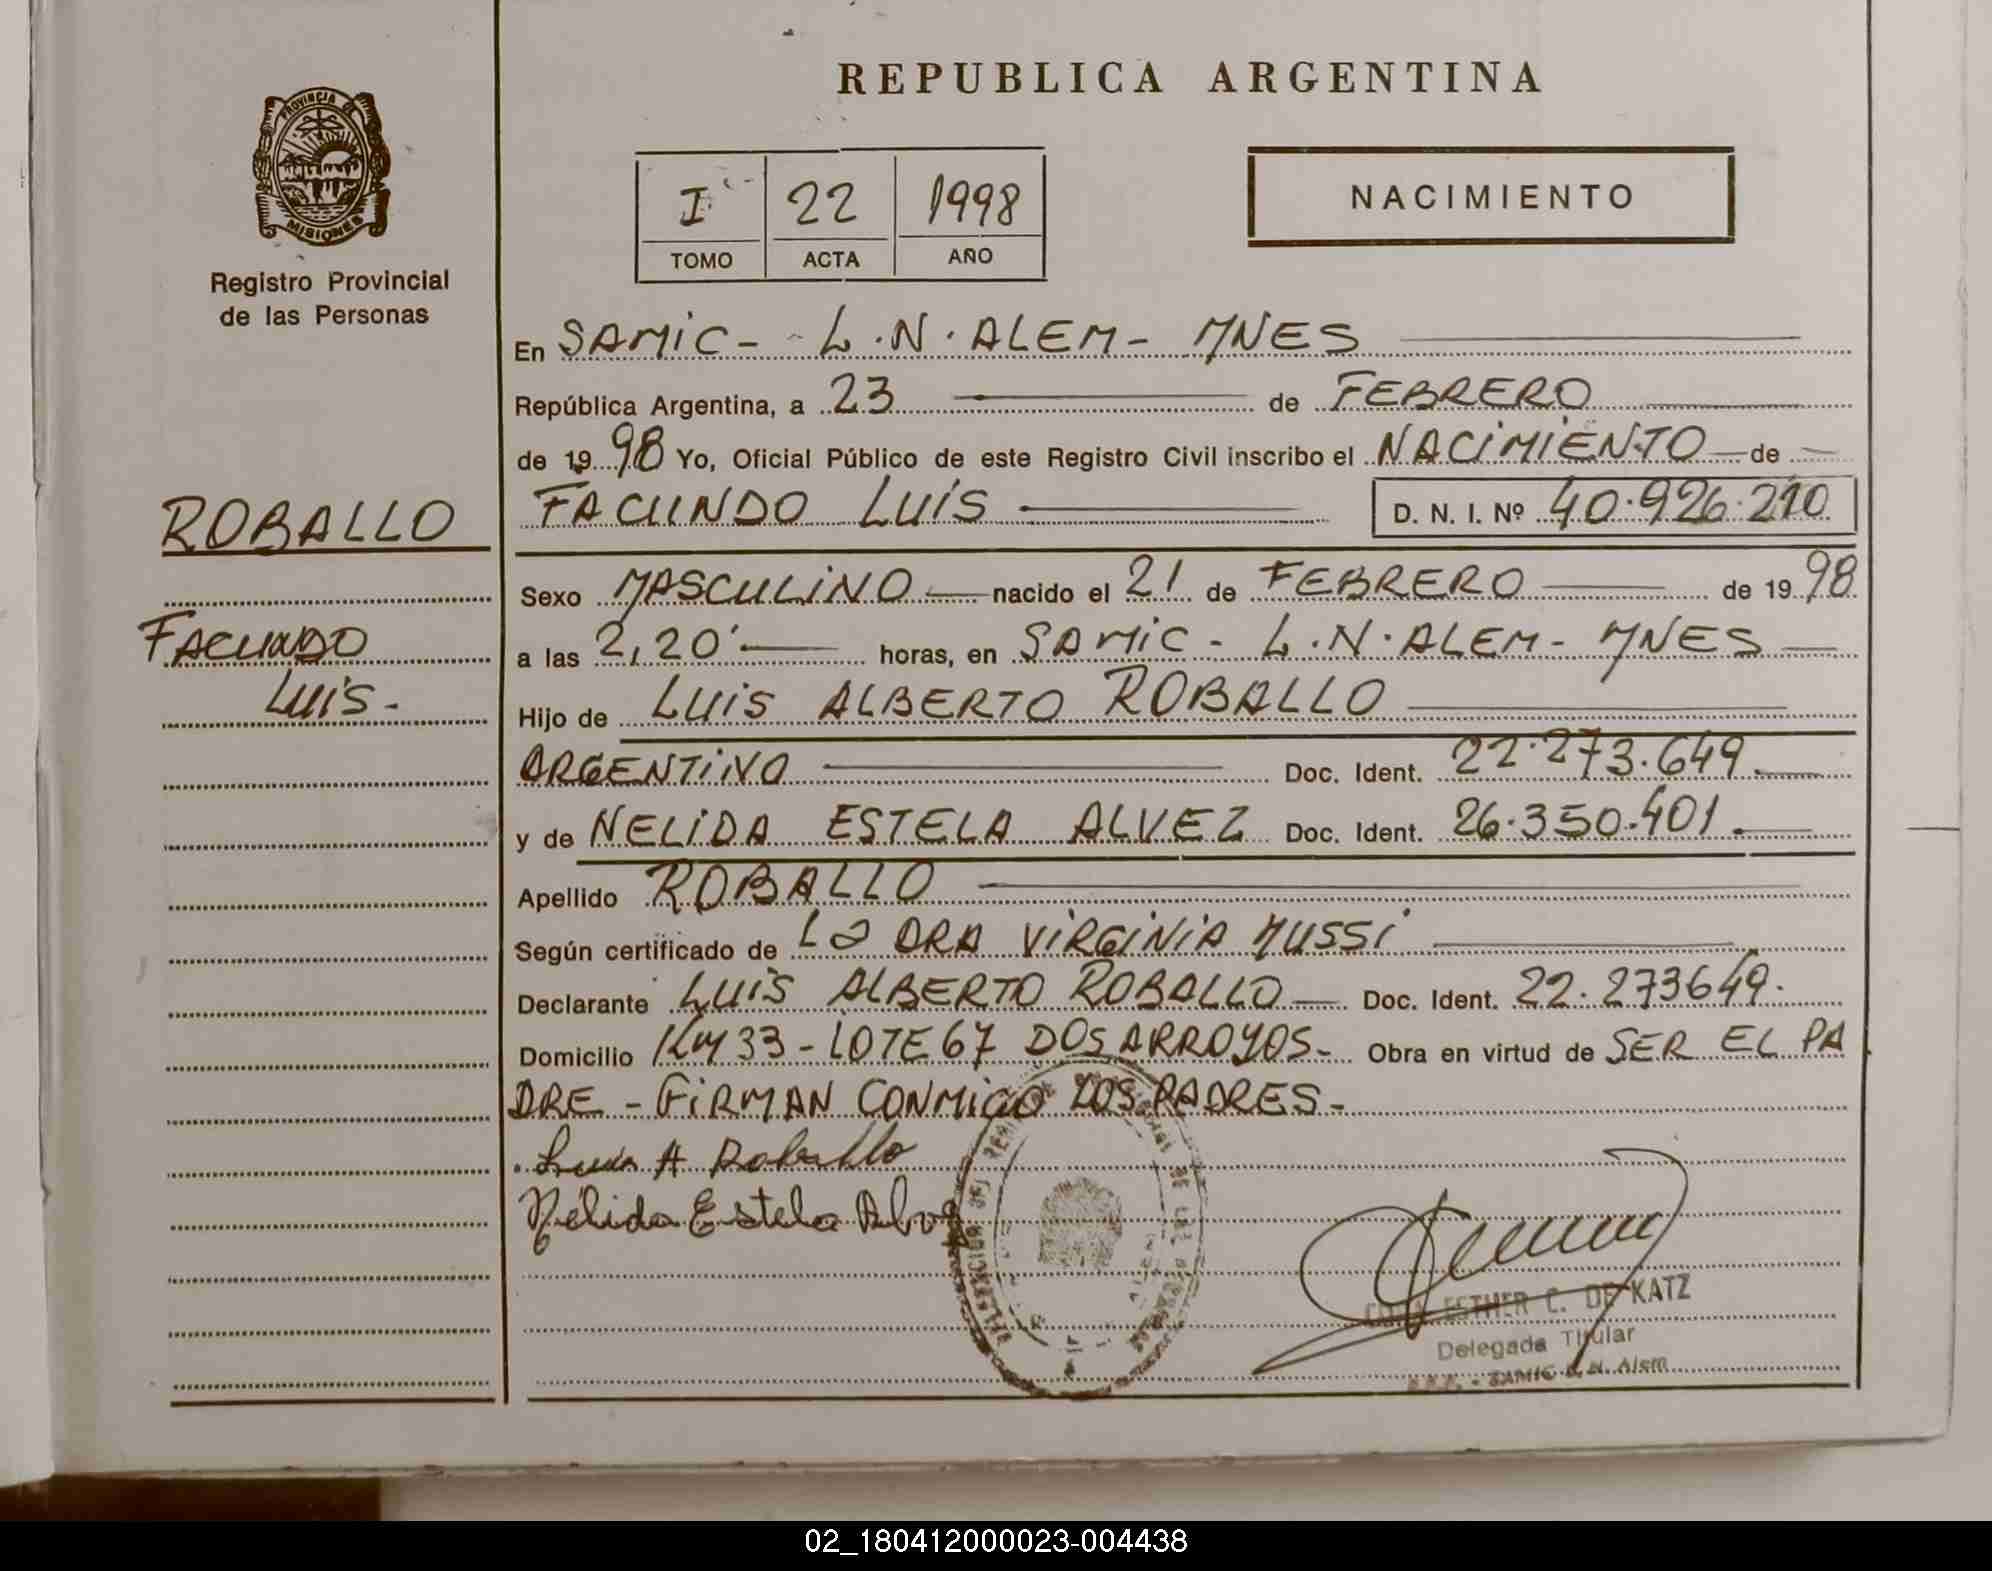 REPUBLICA ARGENTINA
PROVINCIA DE
MISIONES
Registro Provincial
de las Personas
I 22 1998
TOMO ACTA AÑO
NACIMIENTO
En SAMIC - L.N. ALEM - MNES
República Argentina, a 23 de FEBRERO
de 19 98 Yo, Oficial Público de este Registro Civil inscribo el NACIMIENTO de
FACUNDO LUIS D. N. I. Nº 40.926.210
ROBALLO
FACUNDO
LUIS.-
Sexo MASCULINO nacido el 21 de FEBRERO de 19 98
a las 2,20' horas, en SAMIC - L.N. ALEM - MNES
Hijo de LUIS ALBERTO ROBALLO
ARGENTINO Doc. Ident. 22.273.649.
y de NELIDA ESTELA ALVEZ Doc. Ident. 26.350.401.
Apellido ROBALLO
Según certificado de La DRA VIRGINIA MUSSI
Declarante LUIS ALBERTO ROBALLO Doc. Ident. 22.273649.
Domicilio KM 33 - LOTE 67 DOS ARROYOS - Obra en virtud de SER EL PA
DRE - FIRMAN CONMIGO LOS PADRES -
Luis A Roballo
Nélida Estela Alvez
ESTHER C. DE KATZ
Delegada Titular
SAMIC L. N. Alem
02_180412000023-004438